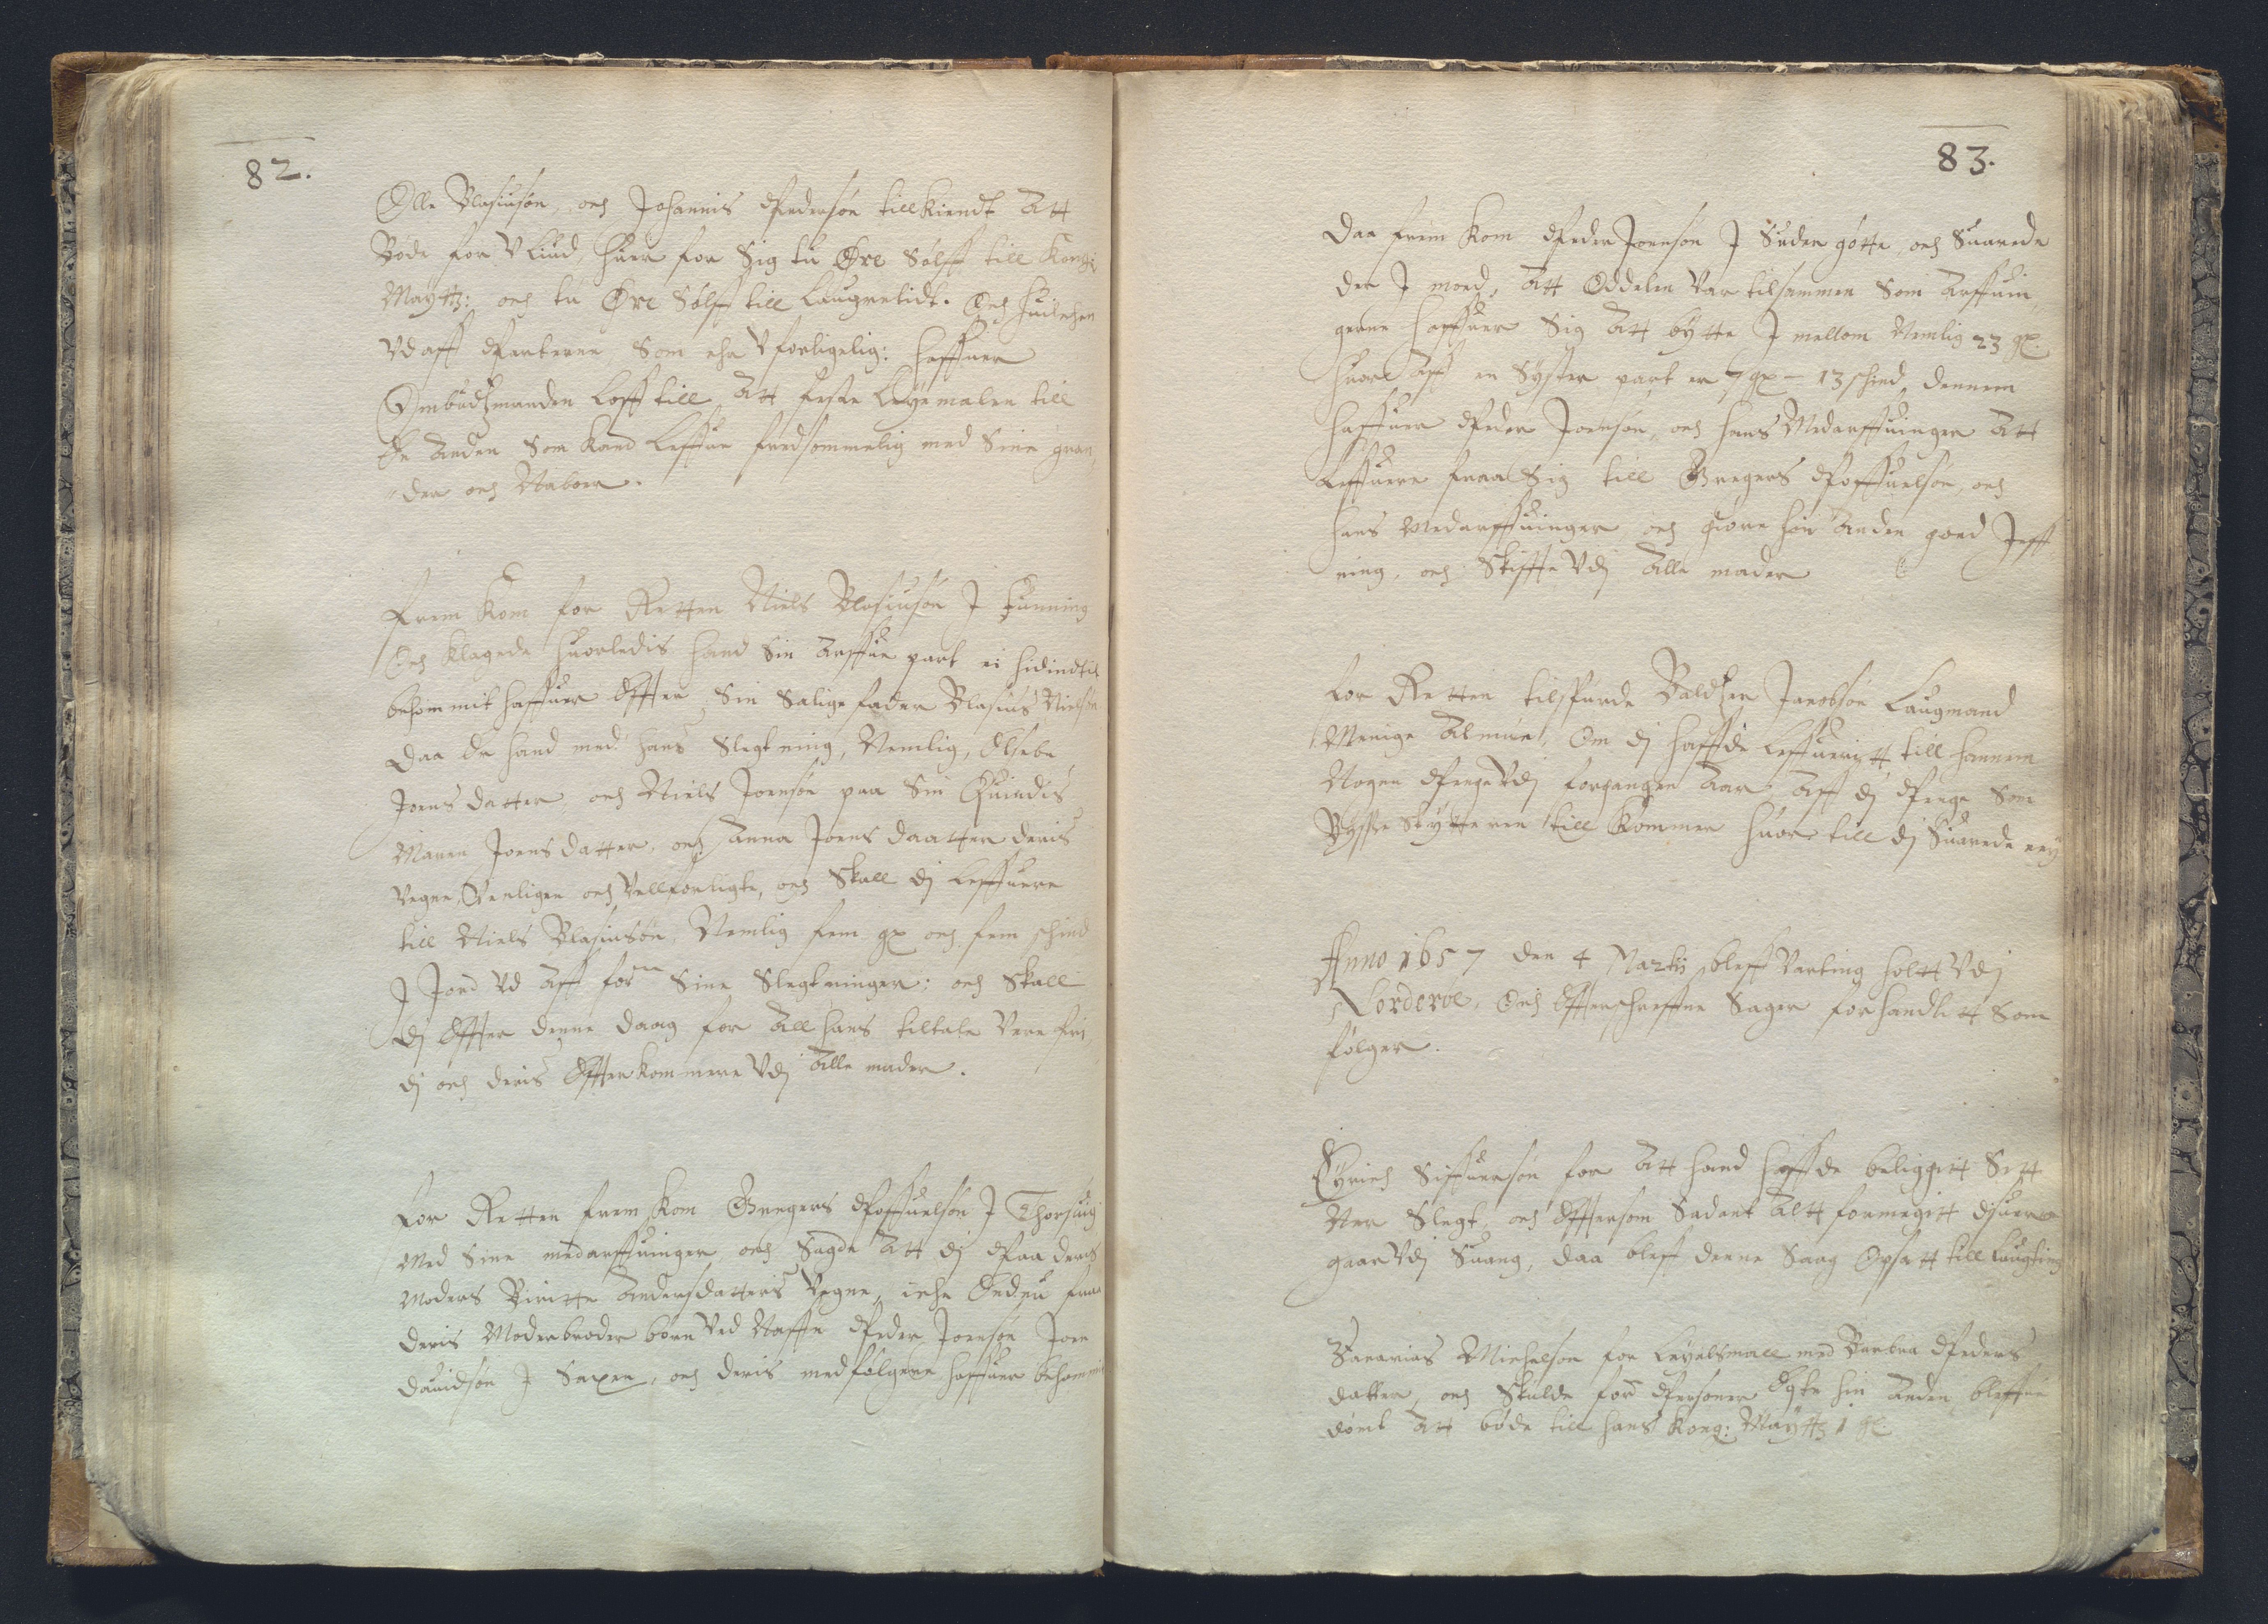 82.
Olle Blasiusøn, och Johannis Pedersøn tillkiendt Att
Bøde for Vliud, huer for Sig tu Øre Sølff till Kongl
Maytt: och tu Øre Sølff till Laugretidt. Och huilchen
Vdaff Parterne, Som eha Vforligelig: haffuer
Ombudzmanden Loff till Att feste Leyemalen till
En Anden Som kand Leffue fredsommelig med Sine gran,
,der och Naboer.
Frem Kom for Retten Niels Blasiusøn J Funning
Och klagede huorledis hand Sin Arffue part ei hidindtil
bekommit haffuer Effter Sin Salige fader Blasius Nielsøn
Daa Er hand med hans Slegtning, Nemlig, Elsebe
Joens datter, och Niels Joensøn paa Sin Quindis
Maren Joensdatter, och Anna Joens daatter deris
Vegne, Venligen och Vellforligte, och Skall dj Leffuere
till Niels Blasiusøn, Nemlig fem gx och fem schind
J Jord Vd Aff forne Sine Slegtninger: och Skall
dj Effter denne daag for All hans tiltale Vere fri
dj och deris Effterkommere Vdj Alle mader.
For Retten frem Kom Gregers Poffuelsøn J Thorsuig
Med Sine medarffuinger och Sagde Att dj Paa deris
Moders Biritte Andersdatters Vegne, icke Endnu fraa
deris Moderbroder børn Ved Naffn Peder Joensøn Joen
Dauidsøn J Saxen, och deris medfølgere haffuer bekommit
83.
Daa frem Kom Peder Joensøn J Sudergøtte, och Suarede
der J moed, Att Oddelen Var tilsammen Som Arffuin,
gerne haffuer Sig Att bytte J mellom Nemlig 23 gx.
huor Aff en Syster part er 7 gx - 13 schind, dennem
haffuer Peder Joensøn, och hans Medarffuinger Att
Leffuere fraa Sig till Gregers Poffuelsøn, och
hans Medarffuinger, och giøre hin Anden goed Jeff
ning, och Skiffte Vdj Alle mader
For Retten tilspurde Baldzer Jacobsøn Laugmand
Menige Almue, Om dj haffde Leffueritt till hannem
Nogen Penge Vdj forgangen Aar, Aff dj Penge Som
Bysse Skytteren till Kommer huor till dj Suarede ney
Anno 1657 den 4 Martii bleff Varting holtt Vdj
Norderøe, Och Effterschreffne Sager forhandlitt Som
følger.
Eyrich Siffuersøn for Att hand haffde beliggitt Sitt
Ner Slegt, och Effttersom Sadant Altt formegitt disuerre
gaar Vdj Suang, daa bleff denne Saag Opsatt till Laugting
Zacarias Michelsøn for Leyelsmall med Barbra Peders
datter, och Skulde forne Personer Ecte hin Anden bleffue
dømt Att bøde till hans Kong: Maytt 1 gl.